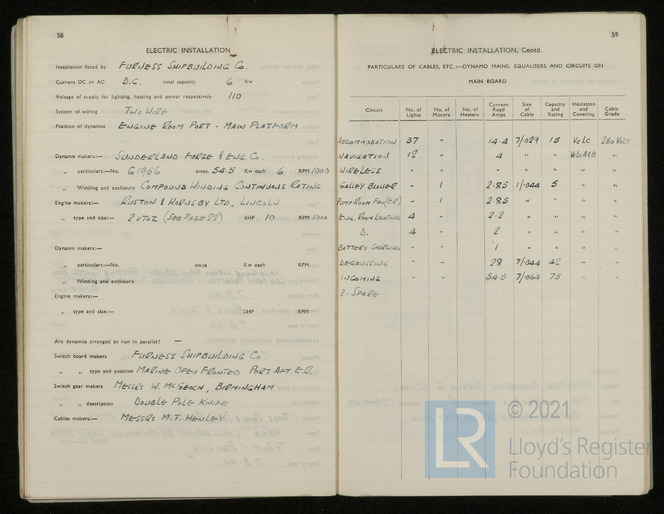 58
ELECTRIC INSTALLATION
Installation fitted by FURNESS SHIPBUILDING CO.
Current DC or AC D.C. total capacity 6 Kw
Voltage of supply for lighting, heating and power respectively 110
System of wiring TWO WIRE
Position of dynamos ENGINE ROOM PORT - MAIN PLATFORM
Dynamo makers:— SUNDERLAND FORGE & ENG. CO.
„ particulars:—No. G1966 amps. 54.5 Kw each 6 RPM 1000
„ Winding and enclosure COMPOUND WINDING CONTINUOUS RATING
Engine makers:— RUSTON & HORNSBY LTD., LINCOLN
„ type and size:— 2VTOZ (SEE PAGE 22) BHP 10 RPM 1000
Dynamo makers:—
„ particulars:—No. amps Kw each RPM
„ Winding and enclosure
Engine makers:—
„ type and size:— BHP RPM
Are dynamos arranged to run in parallel? —
Switch board makers FURNESS SHIPBUILDING CO
„ „ type and position MARINE OPEN FRONTED PORT AFT. E.R.
Switch gear makers MESSRS W. MCGEOCH, BIRMINGHAM
„ „ description DOUBLE POLE KNIFE
Cables makers:— MESSRS M.T. HENLEY
59
ELECTRIC INSTALLATION, Contd.
PARTICULARS OF CABLES, ETC.:—DYNAMO MAINS, EQUALISERS AND CIRCUITS ON
MAIN BOARD
Circuit No. of Lights No. of Motors No. of Heaters Current Reqd Amps Size of Cable Capacity and Rating Insulation and Covering Cable Grade
ACCOMMODATION 37 - 14.4 7/029 15 250 VOLT
NAVIGATION 12 - 4 „ „ „
WIRELESS - - - „ „ „ „
GALLEY BLOWER - 1 2.85 1/044 5 „ „
PUMP ROOM FAN (E.R.) - 1 2.85 „ „ „ „
ENG. ROOM LIGHTING 4 - 2.2 „ „ „ „
D. 4 - 2 „ „ „ „
BATTERY CHARGING - - 1 „ „ „ „
DEGAUSSING - - 28 7/044 42 „ „
INCOMING - - 54.5 7/064 75 „ „
3 - SPARE
LR
© 2021
Lloyd's Register
Foundation